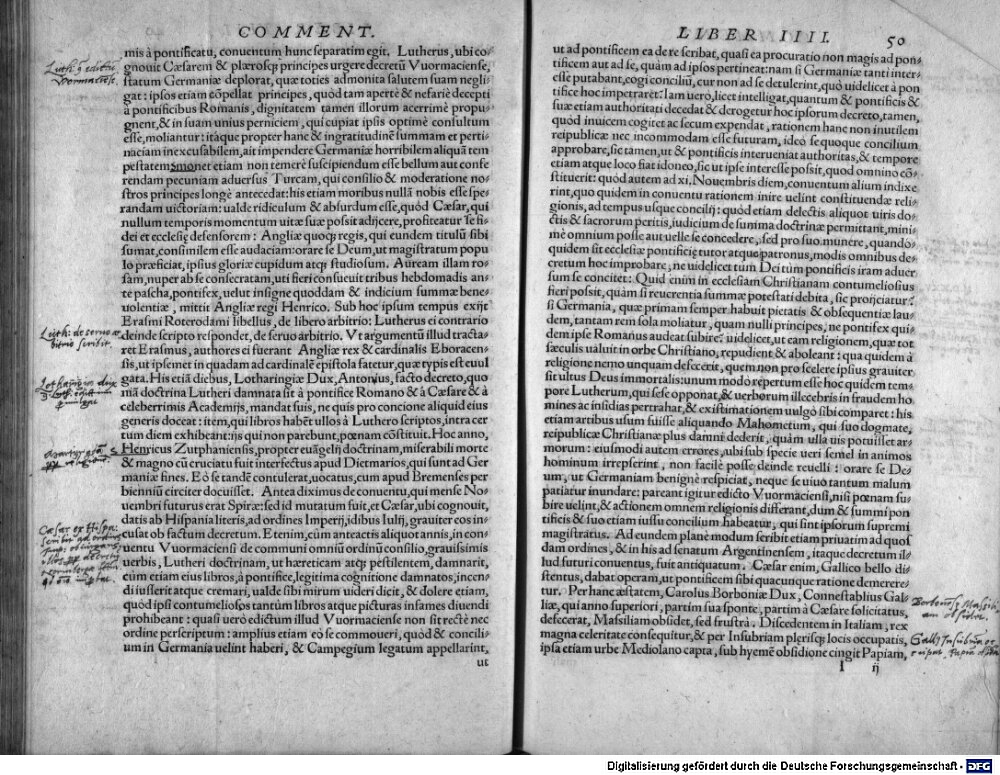 COMMENT.
mis à pontificatu, conuentum hunc separatim egit. Lutherus, ubi co-
gnouit Cæsarem & plærosq; principes urgere decretũ Vuormaciense,
statum Germaniæ deplorat, quæ toties admonita salutem suam negli-
gat: ipsos etiam cõpellat principes, quòd tam apertè & nefariè decepti
à pontificibus Romanis, dignitatem tamen illorum acerrimè propu-
gnent, & in suam unius perniciem, qui cupiat ipsis optimè consultum
esse, moliantur: itaque propter hanc & ingratitudinẽ summam et perti-
naciam inexcusabilem, ait impendere Germaniæ horribilem aliquã tem
pestatem: monet etiam non temerè suscipiendum esse bellum aut confe
rendam pecuniam aduersus Turcam, qui consilio & moderatione no-
stros principes longè antecedat: his etiam moribus nullã nobis esse spe-
randam uictoriam: ualde ridiculum & absurdum esse, quòd Cæsar, qui
nullum temporis momentum uitæ suæ possit adijcere, profiteatur Se fi-
dei et ecclesię defensorem: Angliæ quoq; regis, qui eundem titulũ sibi
sumat, consimilem esse audaciam: orare se Deum, ut magistratum popu
lo præficiat, ipsius gloriæ cupidum atq; studiosum. Auream illam ro-
sam, nuper ab se consecratam, uti fieri consueuit tribus hebdomadis an-
te pascha, pontifex, uelut insigne quoddam & indicium summæ bene-
uolentiæ, mittit Angliæ regi Henrico. Sub hoc ipsum tempus exijt
Erasmi Roterodami libellus, de libero arbitrio: Lutherus ei contrario
deinde scripto respondet, de seruo arbitrio. Vt argumentũ illud tracta-
ret Erasmus, authores ei fuerant Angliæ rex & cardinalis Eboracen-
sis, ut ipsemet in quadam ad cardinalẽ epistola fatetur, quæ typis est euul
gata. His etiã diebus, Lotharingiæ Dux, Antonius, facto decreto, quo-
niã doctrina Lutheri damnata sit à pontifice Romano & à Cæsare & à
celeberrimis Academijs, mandat suis, ne quis pro concione aliquid eius
generis doceat: item, qui libros habẽt ullos à Luthero scriptos, intra cer
tum diem exhibeant: ijs qui non parebunt, pœnam cõstituit. Hoc anno,
Henricus Zutphaniensis, propter euãgelij doctrinam, miserabili morte
& magno cũ cruciatu fuit interfectus apud Dietmarios, qui sunt ad Ger
maniæ fines. Eò se tandẽ contulerat, uocatus, cum apud Bremenses per
bienniũ circiter docuisset. Antea diximus de conuentu, qui mense No-
uembri futurus erat Spiræ: sed id mutatum fuit, et Cæsar, ubi cognouit,
datis ab Hispania literis, ad ordines Imperij, idibus Iulij, grauiter eos in-
cusat ob factum decretum. Etenim, cùm anteactis aliquot annis, in con-
uentu Vuormaciensi de communi omniũ ordinũ consilio, grauissimis
uerbis, Lutheri doctrinam, ut hæreticam atq; pestilentem, damnarit,
cùm etiam eius libros, à pontifice, legitima cognitione damnatos, incen-
di iusserit atque cremari, ualde sibi mirum uideri dicit, & dolere etiam,
quòd ipsi contumeliosos tantùm libros atque picturas infames diuendi
prohibeant: quasi uerò edictum illud Vuormaciense non sit rectè nec
ordine perscriptum: amplius etiam eò se commoueri, quòd & concili-
um in Germania uelint haberi, & Campegium legatum appellarint,
ut
Luth:
Vormaciense
Luth: de seruo ar
bitrio scribit.
Cæsar ex Hispa:
LIBER IIII. 50
ut ad pontificem ea de re scribat, quasi ea procuratio non magis ad pon-
tificem aut ad se, quàm ad ipsos pertineat: nam si Germaniæ tanti inter-
esse putabant, cogi conciliũ, cur non ad se detulerint, quò uidelicet à pon
tifice hoc impetraret? Iam uero, licet intelligat, quantum & pontificis &
suæ etiam authoritati decedat & derogetur hoc ipsorum decreto, tamen,
quòd inuicem cogitet ac secum expendat, rationem hanc non inutilem
reipublicæ nec incommodam esse futuram, ideò se quoque concilium
approbare, sic tamen, ut & pontificis interueniat authoritas, & tempore
etiam atque loco fiat idoneo, sic ut ipse interesse possit, quod omnino cõ-
stituerit: quòd autem ad xi, Nouembris diem, conuentum alium indixe
rint, quo quidem in conuentu rationem inire uelint constituendæ reli-
gionis, ad tempus usque concilij: quòd etiam delectis aliquot uiris do-
ctis & sacrorum peritis, iudicium de summa doctrinæ permittant, mini-
mè omnium posse aut uelle se concedere, sed pro suo munere, quando-
quidem sit ecclesiæ pontificię tutor atque patronus, modis omnibus de-
cretum hoc improbare, ne uidelicet tum Dei tùm pontificis iram aduer
sum se concitet: Quid enim in ecclesiam Christianam contumeliosius
fieri possit, quàm si reuerentia summæ potestati debita, sic proijciatur?
si Germania, quæ primam semper habuit pietatis & obsequentiæ lau-
dem, tantam rem sola moliatur, quam nulli principes, ne pontifex qui-
dem ipse Romanus audeat subire? uidelicet, ut eam religionem, quæ tot
sæculis ualuit in orbe Christiano, repudient & aboleant: qua quidem à
religione nemo unquam defecerit, quem non pro scelere ipsius grauiter
sit ultus Deus immortalis: unum modò repertum esse hoc quidem tem-
pore Lutherum, qui sese opponat, & uerborum illecebris in fraudem ho
mines ac insidias pertrahat, & existimationem uulgò sibi comparet: his
etiam artibus usum fuisse aliquando Mahometum, qui suo dogmate,
reipublicæ Christianæ plus damni dederit, quàm ulla uis potuisset ar-
morum: eiusmodi autem errores, ubi sub specie ueri semel in animos
hominum irrepserint, non facilè posse deinde reuelli: orare se De-
um, ut Germaniam benignè respiciat, neque se uiuo tantum malum
patiatur inundare: pareant igitur edicto Vuormaciensi, nisi pœnam su-
bire uelint, & actionem omnem religionis differant, dum & summi pon
tificis & suo etiam iussu concilium habeatur, qui sint ipsorum supremi
magistratus. Ad eundem planè modum scribit etiam priuatim ad quos
dam ordines, & in his ad senatum Argentinensem, itaque decretum il-
lud futuri conuentus, fuit antiquatum. Cæsar enim, Gallico bello di-
stentus, dabat operam, ut pontificem sibi quacunque ratione demerere-
tur. Per hanc æstatem, Carolus Borboniæ Dux, Connestablius Gal-
liæ, qui anno superiori, partim sua sponte, partim à Cæsare solicitatus,
defecerat, Massiliam obsidet, sed frustrà. Discedentem in Italiam, rex
magna celeritate consequitur, & per Insubriam plerisq; locis occupatis,
ipsa etiam urbe Mediolano capta, sub hyemẽ obsidione cingit Papiam,
I ij
Digitalisierung gefördert durch die Deutsche Forschungsgemeinschaft - DFG